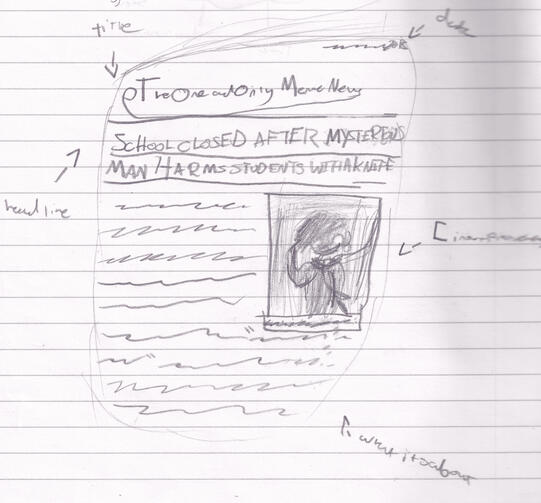 title
date
The One and Only Meme News
SCHOOL CLOSED AFTER MYSTERIOUS
MAN HARMS STUDENTS WITH A KNIFE
headline
what it's about